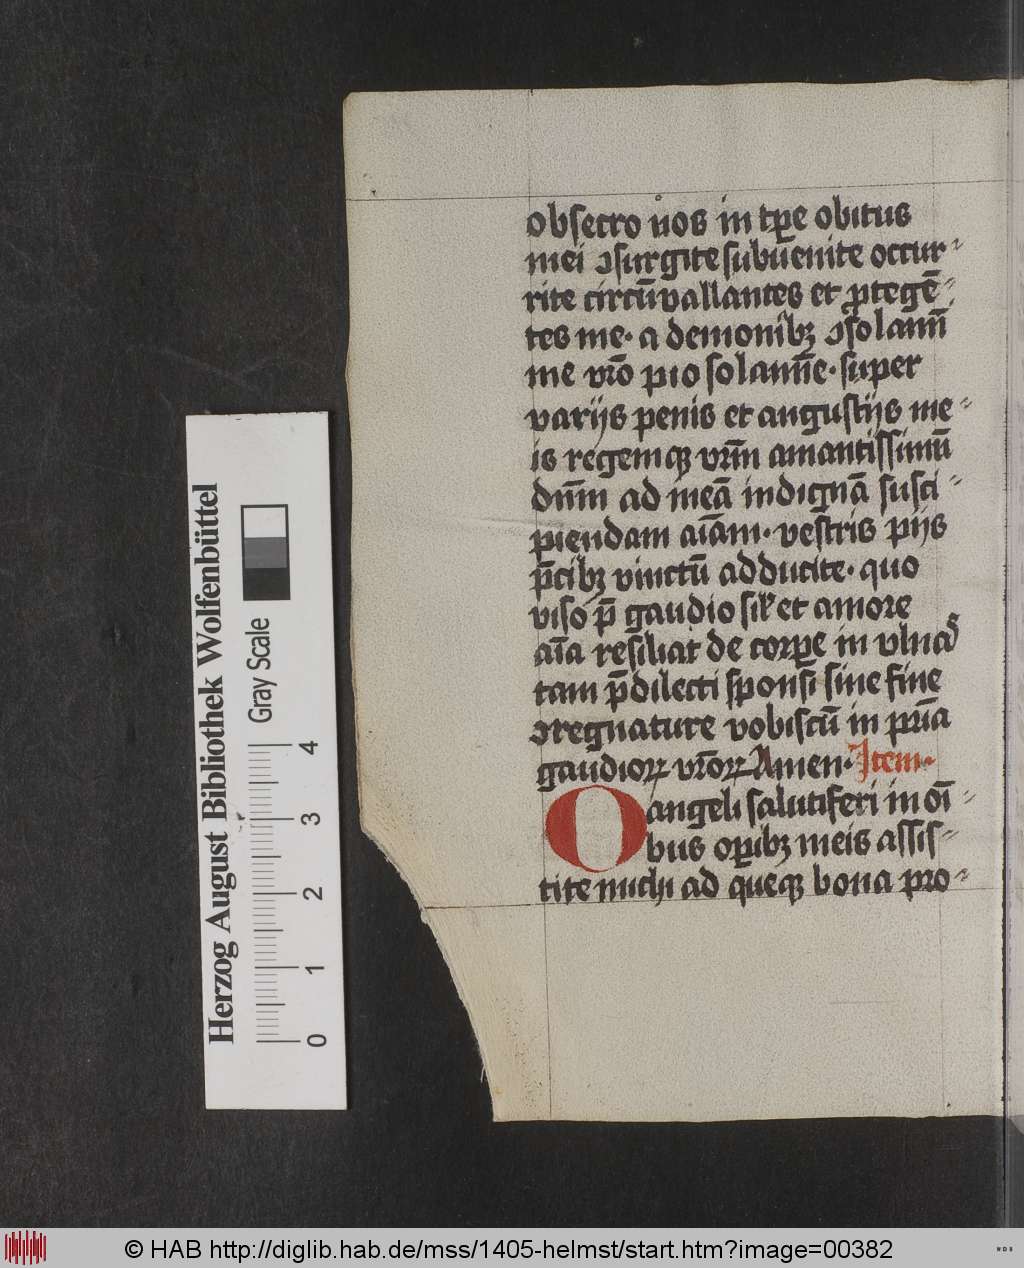 obsecro uos in tp̄e obitus
mei ꝯsurgite subuenite occur-
rite circūvallantes et ꝓtegē-
tes me· a demonibꝫ ꝯsolami̅
me vr̄o pio solami̅e· super
varijs penis et angustijs me-
is regemqꝫ vrm̄ amantissimū
dn̄m ad meā indignā susci-
piendam aīam· vestris pijs
p̄cibꝫ vinctū adducite· quo
viso p̄ gaudio sil̛ et amore
aīa resiliat de corꝑe in vlnas
tam p̄dilecti sponsi sine fine
ꝯregnature vobiscū in pr̄ia
gaudioꝝ vr̄oꝝ Amen· Item·
O angeli salutiferi in oī-
bus oꝑibꝫ meis assis-
tite michi ad queqꝫ bona pro-
Herzog August Bibliothek Wolfenbüttel
Gray Scale
0 1 2 3 4
© HAB http://diglib.hab.de/mss/1405-helmst/start.htm?image=00382